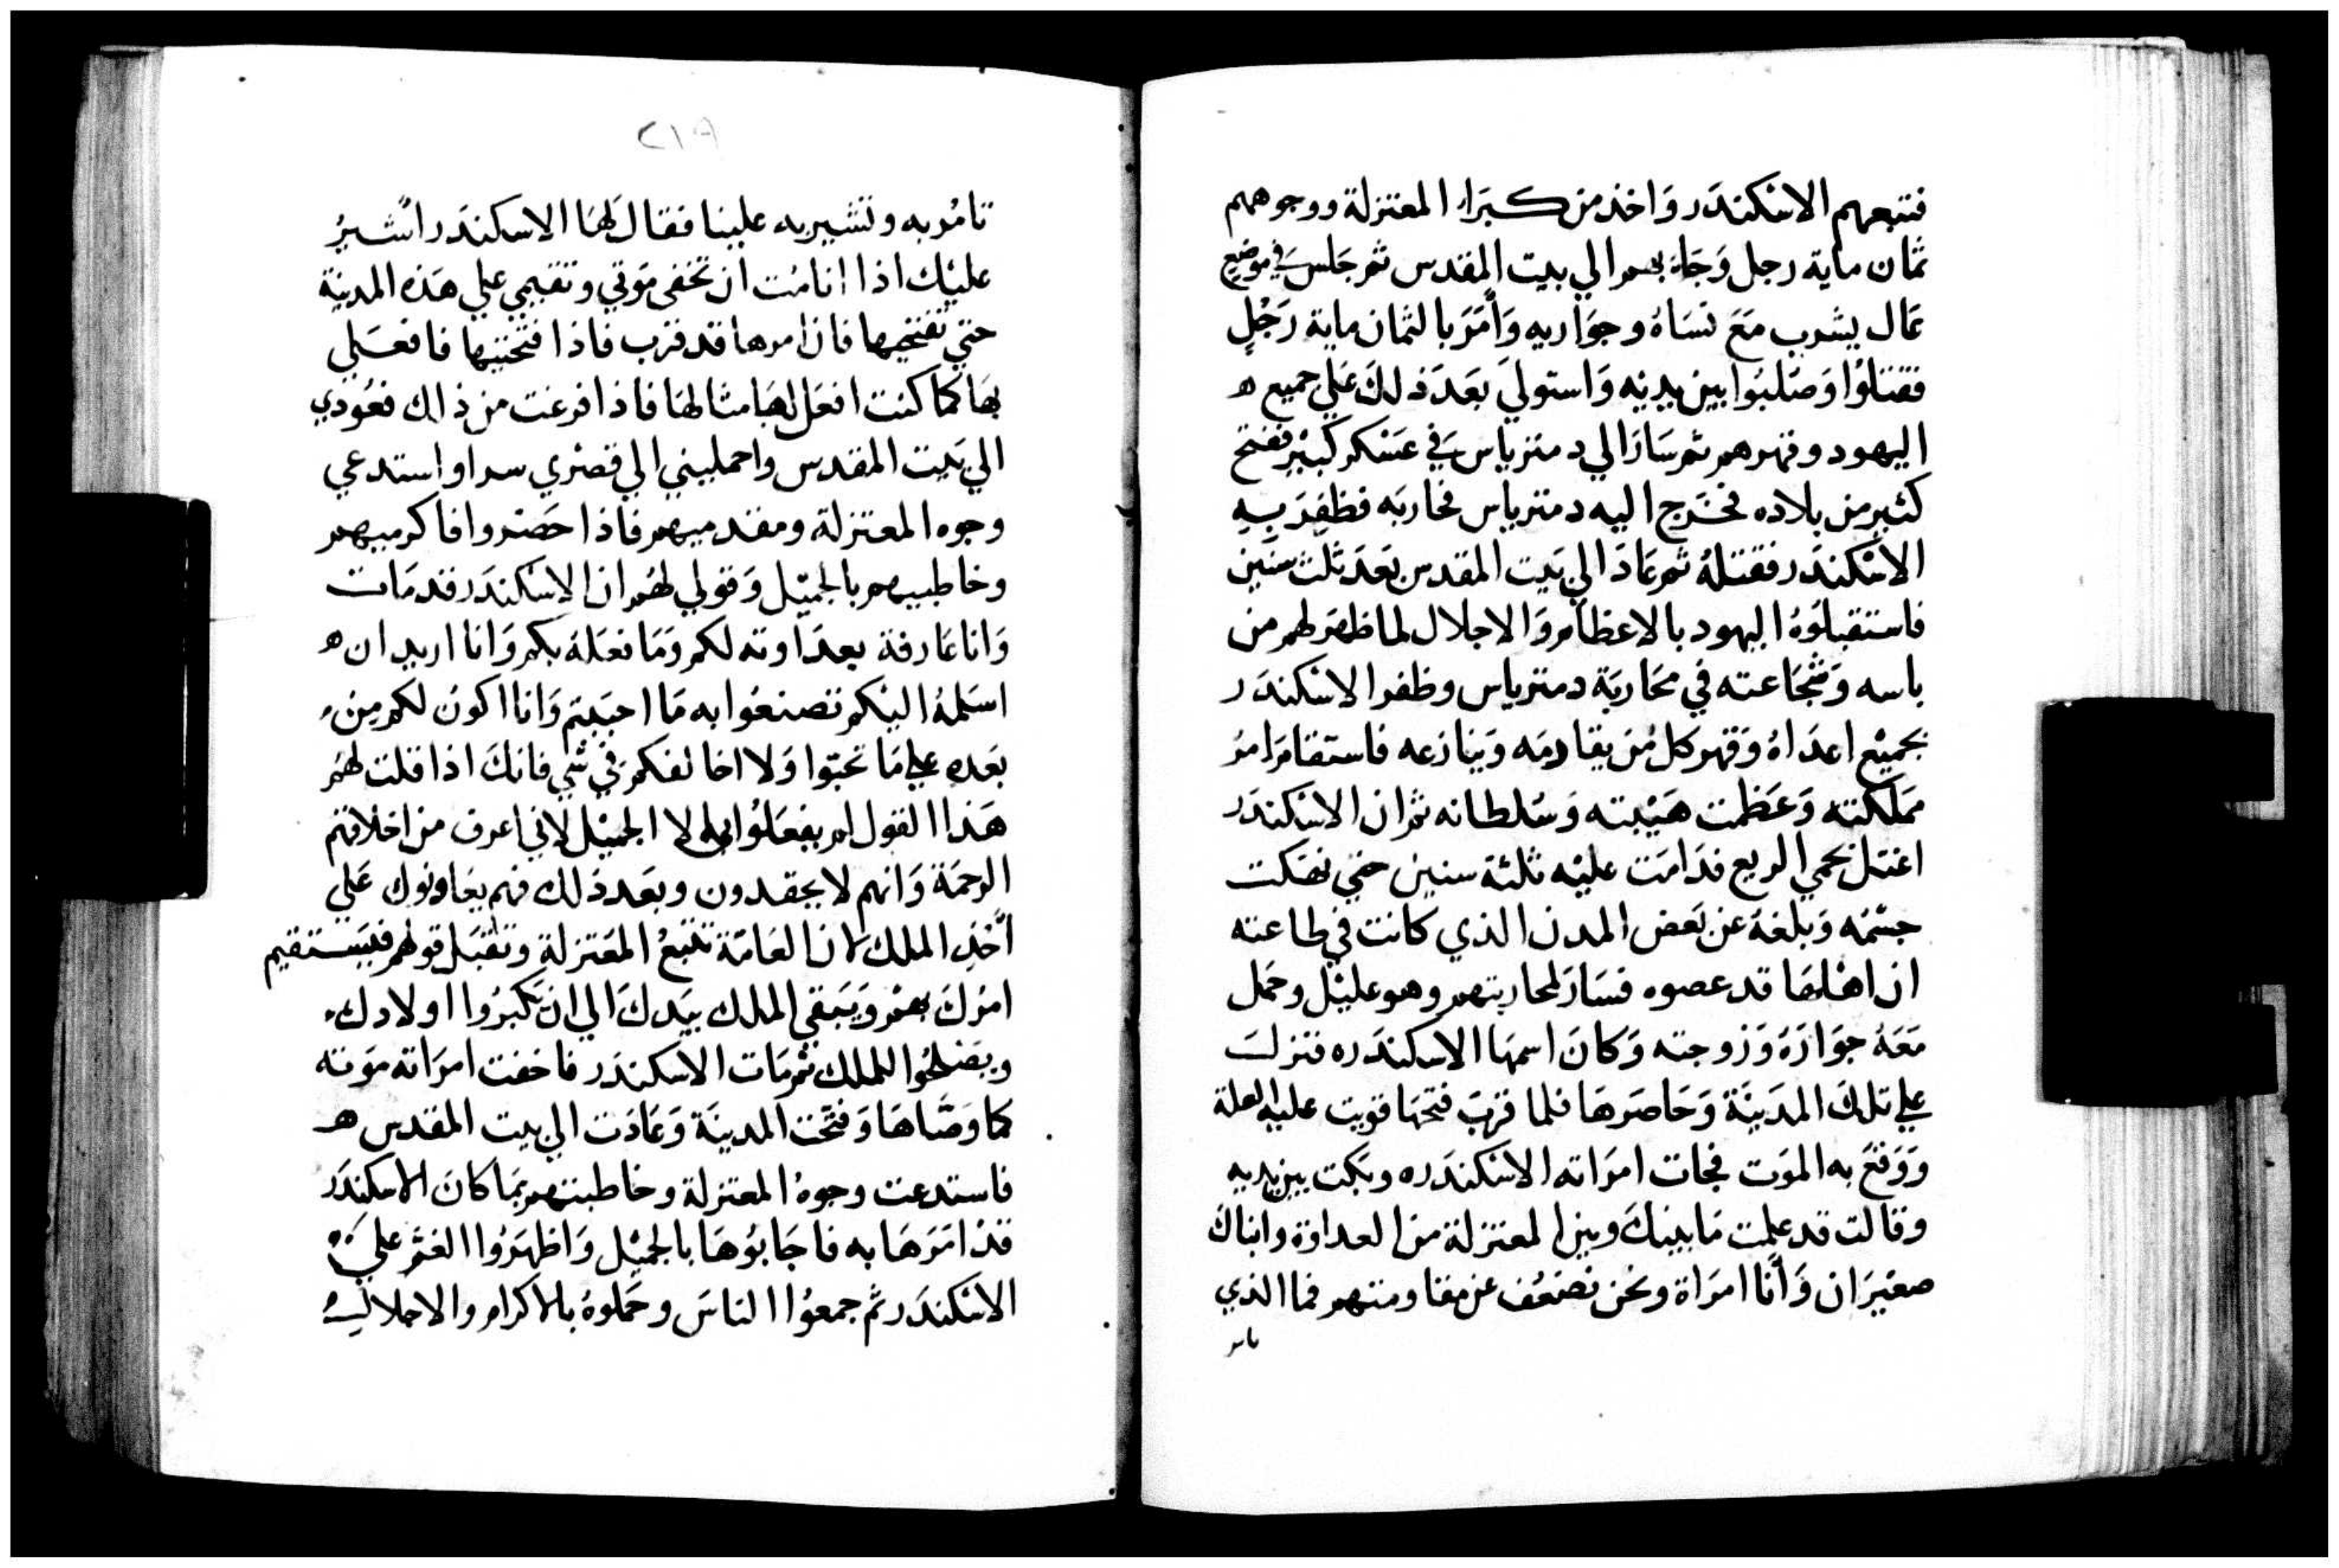 فتبعهم الاسْكندَر وَاخذ من كبَراء المعتزلة ووجوههم
ثمان ماية رجل وَجَاء بهم الي بيت المقدس ثم جَلس في موضع
عَال يشرب مَعَ نسَاهُ وجوَاريه وَأمَرَ بالثمان ماية رَجُلٍ
فقتلوْا وَصُلبُوا بين يديْه وَاستوليَ بعَدَ ذلكَ عَلي جميع ه
اليهود وقهرهم ثم سَارَ الي دمترياس في عَسْكر كبيْر ففتح
كثير من بلاده فخرَج اليه دمترياس فحاربَه فظفِرَ بِهِ
الاسْكندَر فقتلهُ ثم عَادَ الي بَيت المقدس بعَدَ ثلث سنَين
فاستقبلوُهُ اليهود بالاعظام وَالاجلال لما ظهَر لهم من
باسه وَشجَاعته في محَاربَة دمترياس وظفر الاسْكندَر
بجميْع اعدَاهُ وَقهر كل مُن يقاومَه وَينازعه فاستقامَ امرُ
ممَلكته وَعَظمت هَيْبته وَسُلطانه ثم ان الاسْكندَر
اعتل بحمي الربع فدَامَت عليْه ثلثة سنين حتي نهَكت
جسْمه وَبلغهُ عن بَعض المدن الذي كانت في طاعته
ان اهْلهَا قد عصوه فسَارَ لمحاربتهم وهو عليْل وحمَل
مَعَهُ جوَارَهُ وَزوجته وَكانَ اسمهَا الاسكندَره فنزلَ
علي تلكَ المدَينَة وَحَاصَرهَا فلما قربَ فتحهَا قويت عليه العلة
وَوَقعَ به الموَت فجات امرَاته الاسْكندَره وبَكت بين يديه
وقالت قد علمت مَا بينكَ وبين المعتزلة من العداوة وابناك
صغيْرَان وَأنا امرَاة ونحن نضعُف عن مقاومتهم فما الذي
تامر
٢١٨
تامُر به وتشير به علينا فقالَ لهَا الاسكندَر اشيرُ
عليْك اذا انا مُت ان تخفى مَوتي وتقيمي علي هَذه المدينة
حتي تفتحيها فان امرها قد قرب فاذا فتحتيها فافعَلي
بهَا كما كنت افعَل بهَا مثالهَا فاذا فرغت من ذلك فعُودي
الي بَيت المقدس واحمليني الي قصْري سرا واستدعي
وجوه المعتزلة ومقدميهم فاذا حَضرْوا فاكرميهم
وخاطبيهم بالجميْل وَقولي لهُم ان الاسْكندَر قد مَات
وَانا عَارفة بعدَاوته لكم وَمَا فعَلهَ بكم وَانا اريد ان ه
اسَلمهُ اليْكم تصنعُوا به مَا احبَبتم وَانا اكونُ لكم مِن
بعَده علي مَا تحبّوا وَلا اخالفكم في شي فانكَ اذا قلت لهُم
هَذا القول لم يفعَلوُا به الا الجميْل لاني اعرف من اخلاقهم
الرحمَة وَانهم لا يحقدون وبعَد ذلك فهم يعَاونوك عَلي
أخْذِ الملك لان العَامّة تتبعُ المعَتزلة وتقبَل قولهم فيَستقيم
امرُكَ بهمْ وَيَبقي الملك بيَدكَ الي ان يَكبرُوا اولادك
ويصَلحُوا للملك ثم مَات الاسكندَر فاخفت امرَاته مَوته
كما وَصَّاهَا وَفتحت المدينَة وَعَادَت الي بيت المقدس ه
فاستدعت وجوهُ المعتزلة وخاطبتهم بمَا كانَ الاسكندَر
قدْ امَرَهَا به فاجَابُوهَا بالجميْل وَاظهَرُوا الغمَّ عليَ
الاسْكندَر ثم جمعوُا الناسَ وحَملوهُ بالاكرام والاجلال